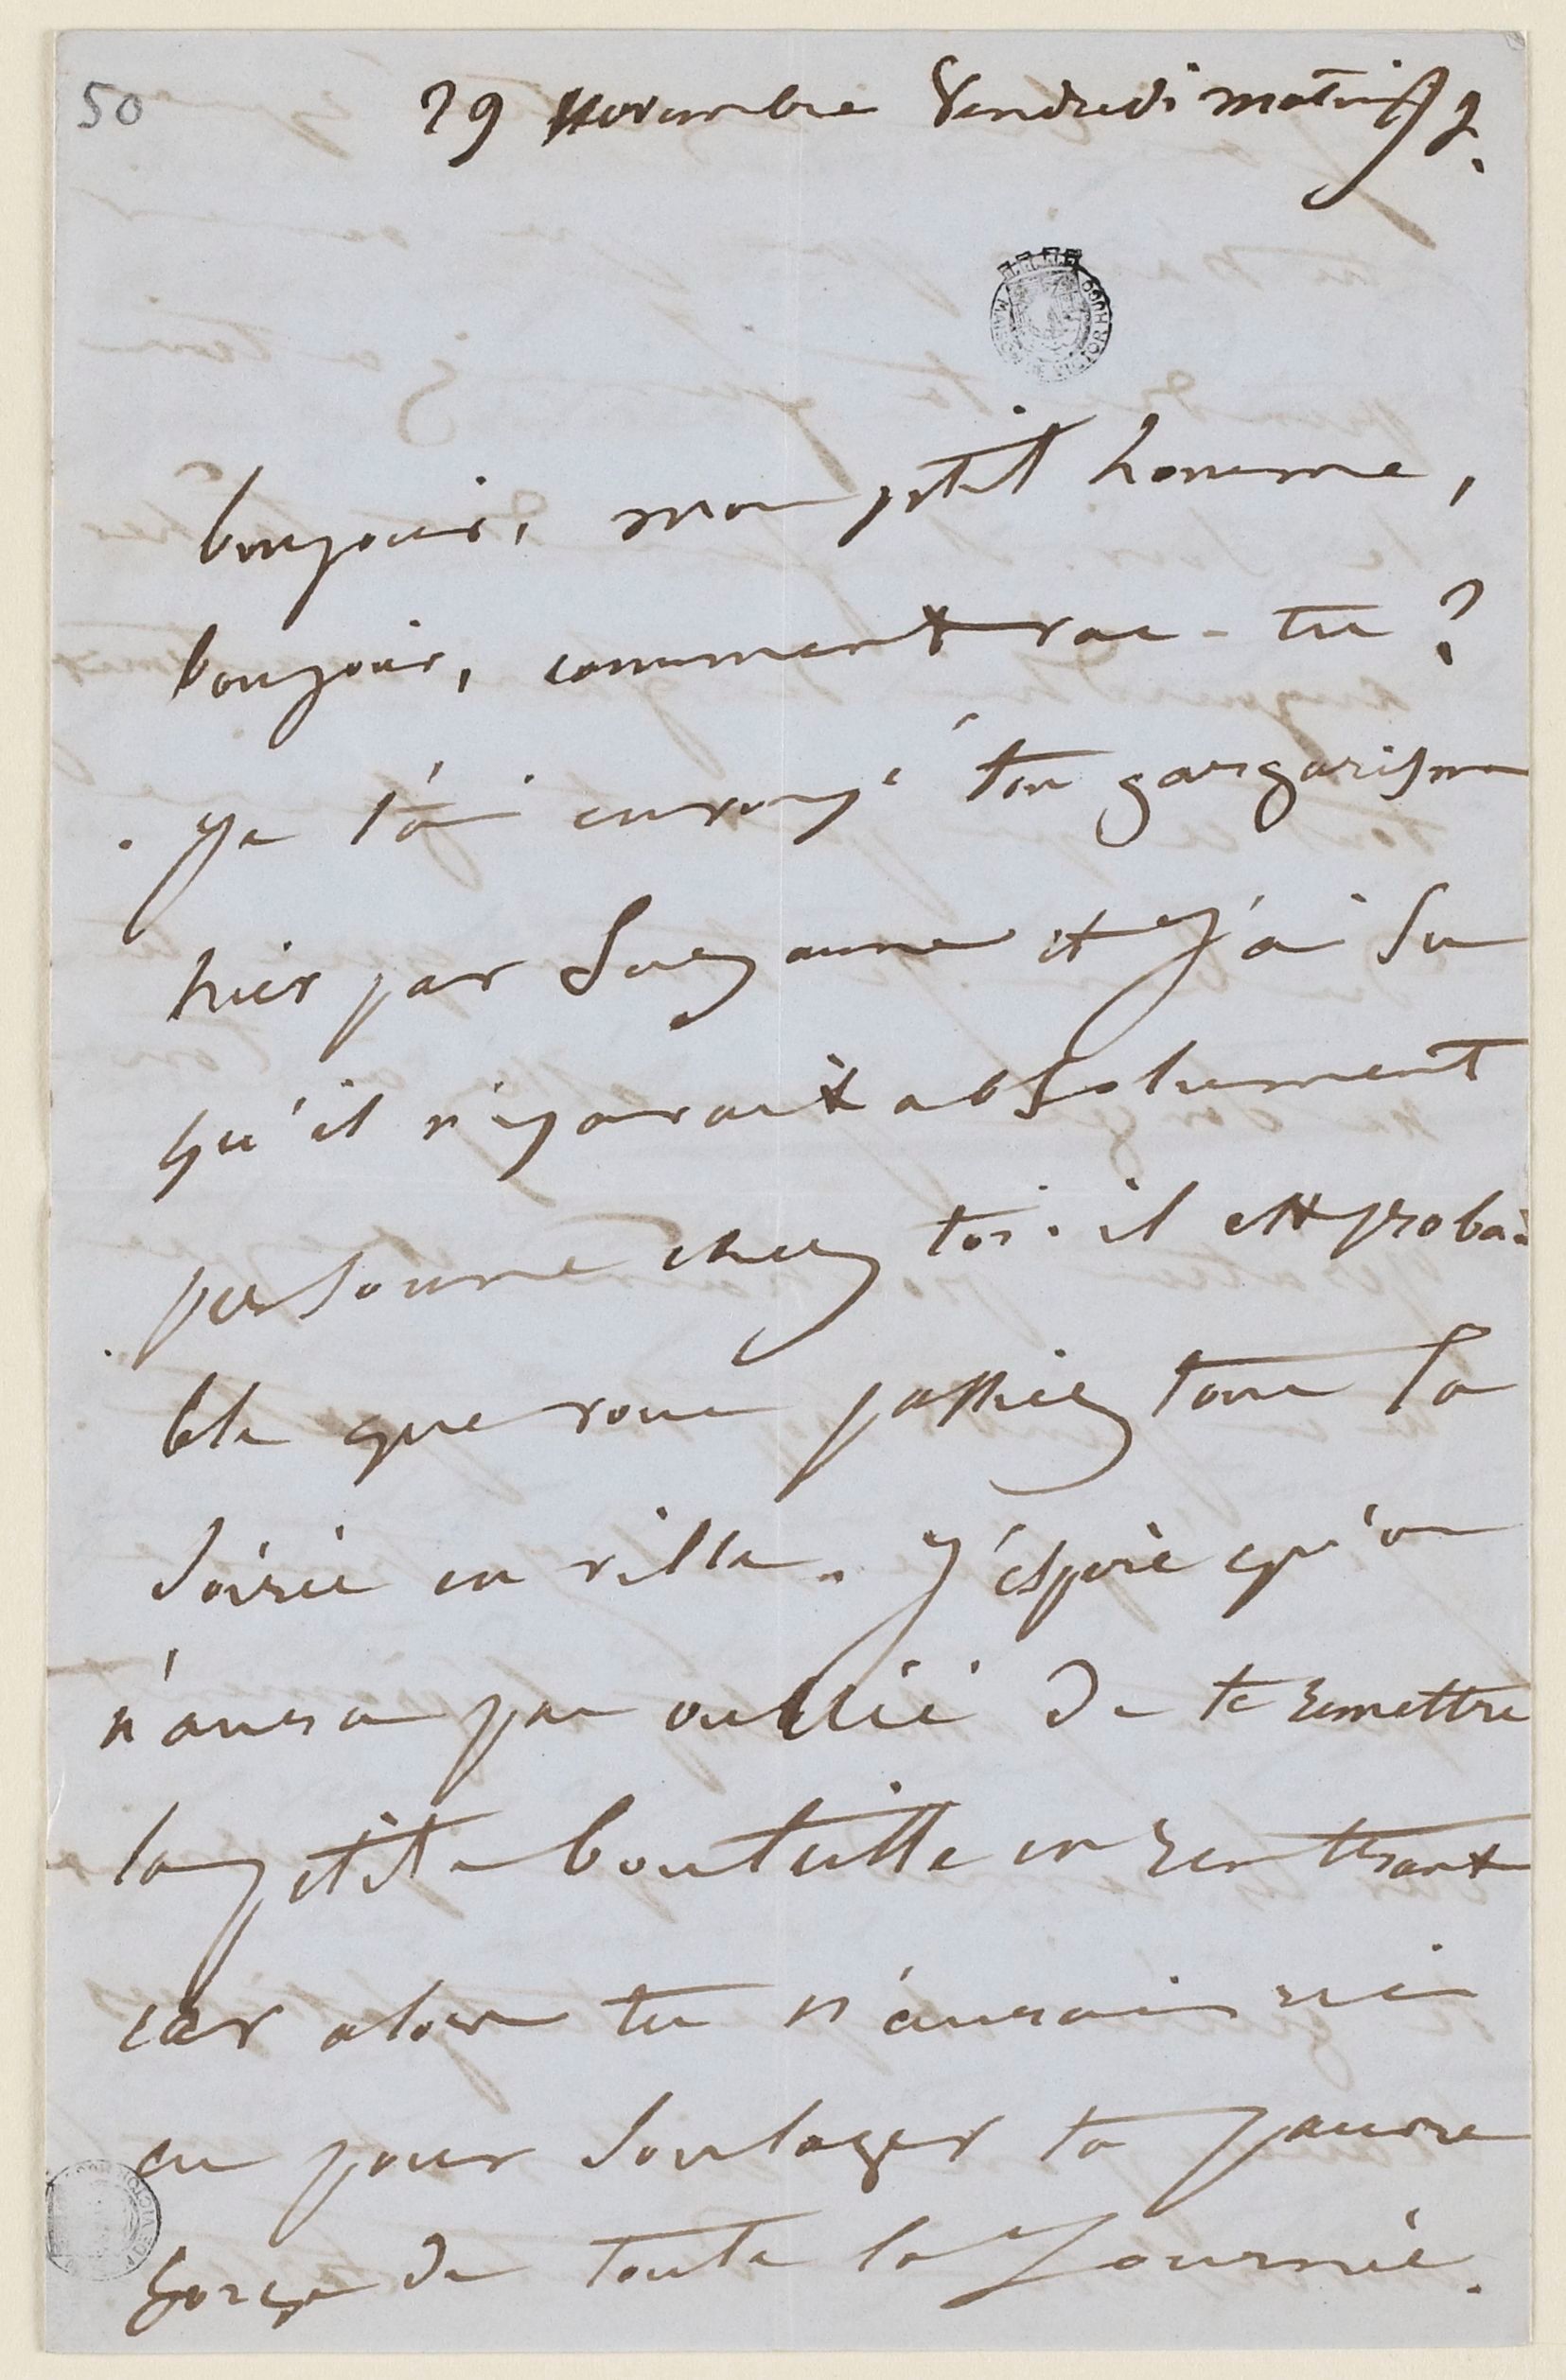 50
29 Novembre Vendredi matin
bonjour, mon petit homme,
bonjour, comment vas-tu ?
Je t'ai envoyé ton gargarisme
hier par Suzanne et j'ai su
qu'il n'y avait absolument
personne chez toi. il est proba-
ble que vous passiez tous la
soirée en ville. J'espère qu'on
n'aura pas oublié de te remettre
la petite bouteille en rentrant
car alors tu n'aurais rien
eu pour soulager ta pauvre
gorge de toute la journée.